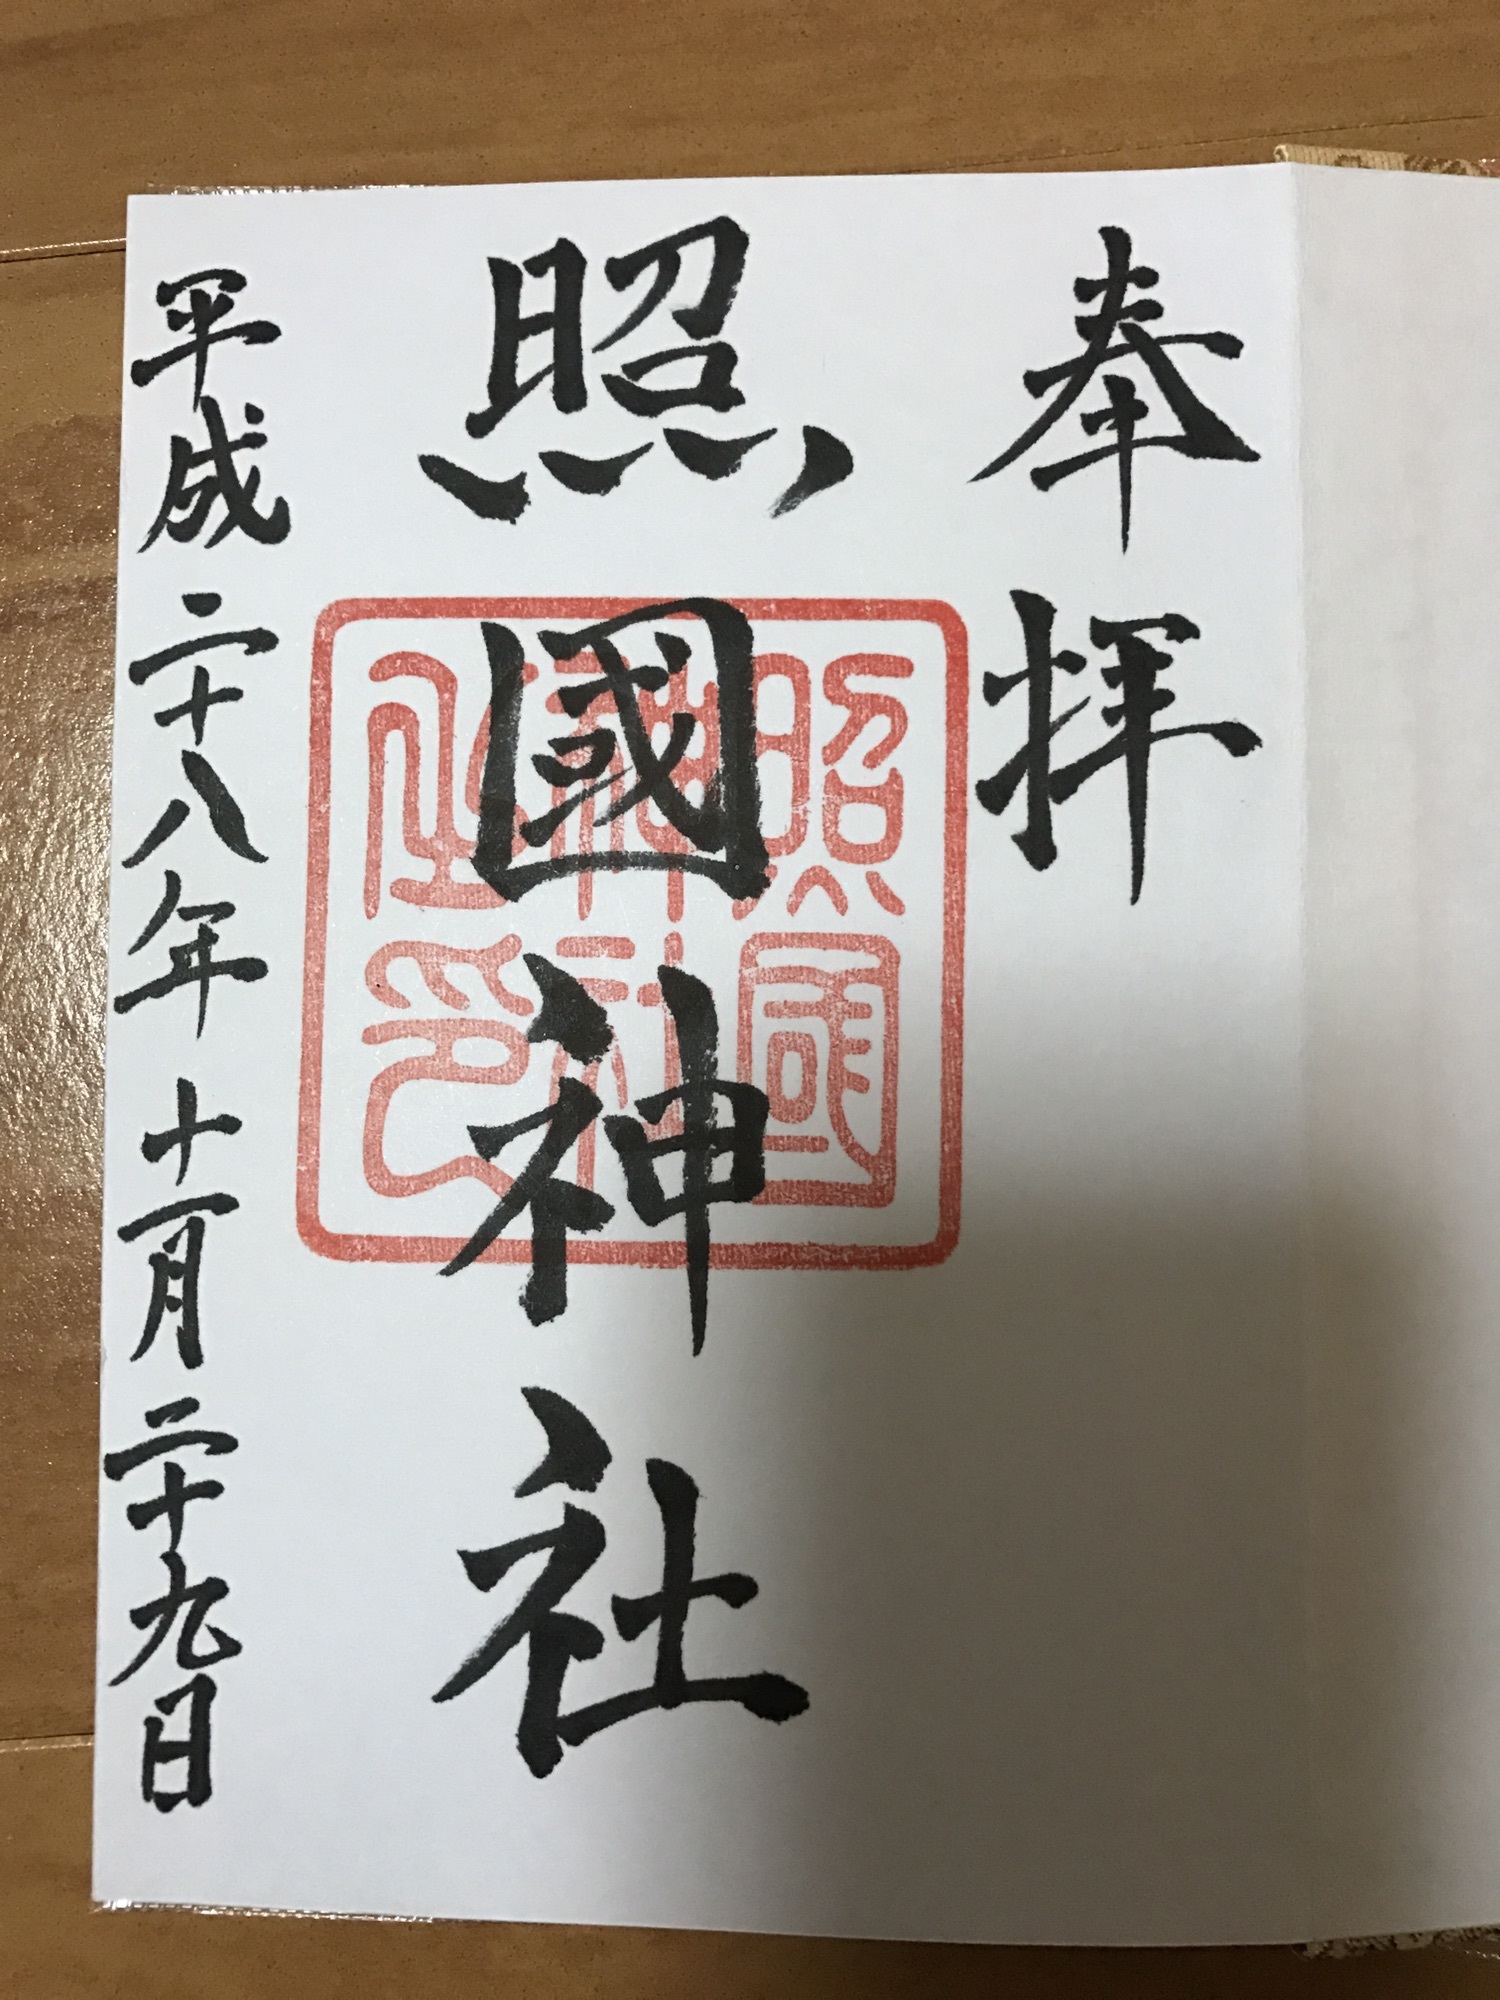 奉拝
照國神社
照國
神社
之印
平成二十八年十一月二十九日